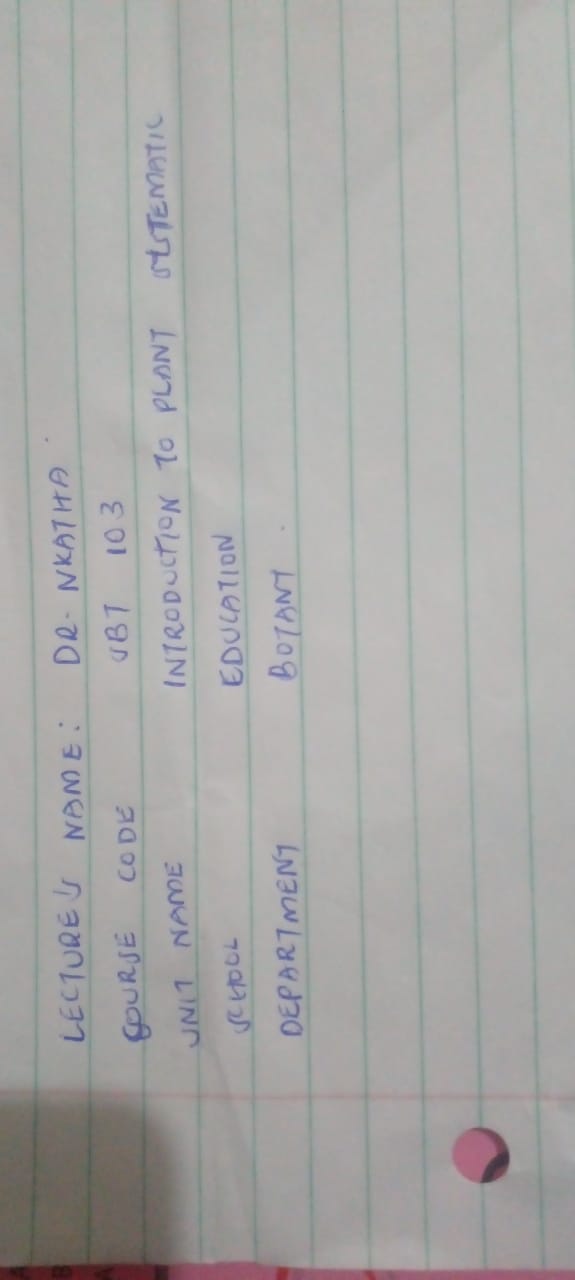 LECTURE'S NAME: DR. NKATHA
COURSE CODE SBT 103
UNIT NAME INTRODUCTION TO PLANT SYSTEMATIC
SCHOOL EDUCATION
DEPARTMENT BOTANY.